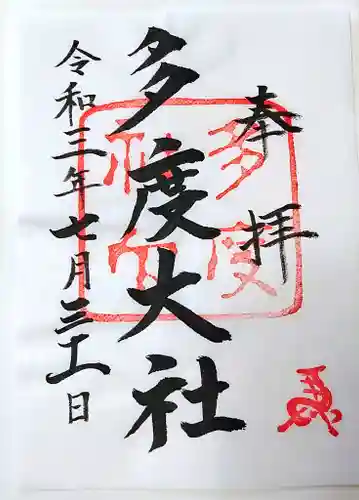 奉拝
多度大社
令和三年七月三十一日
多度